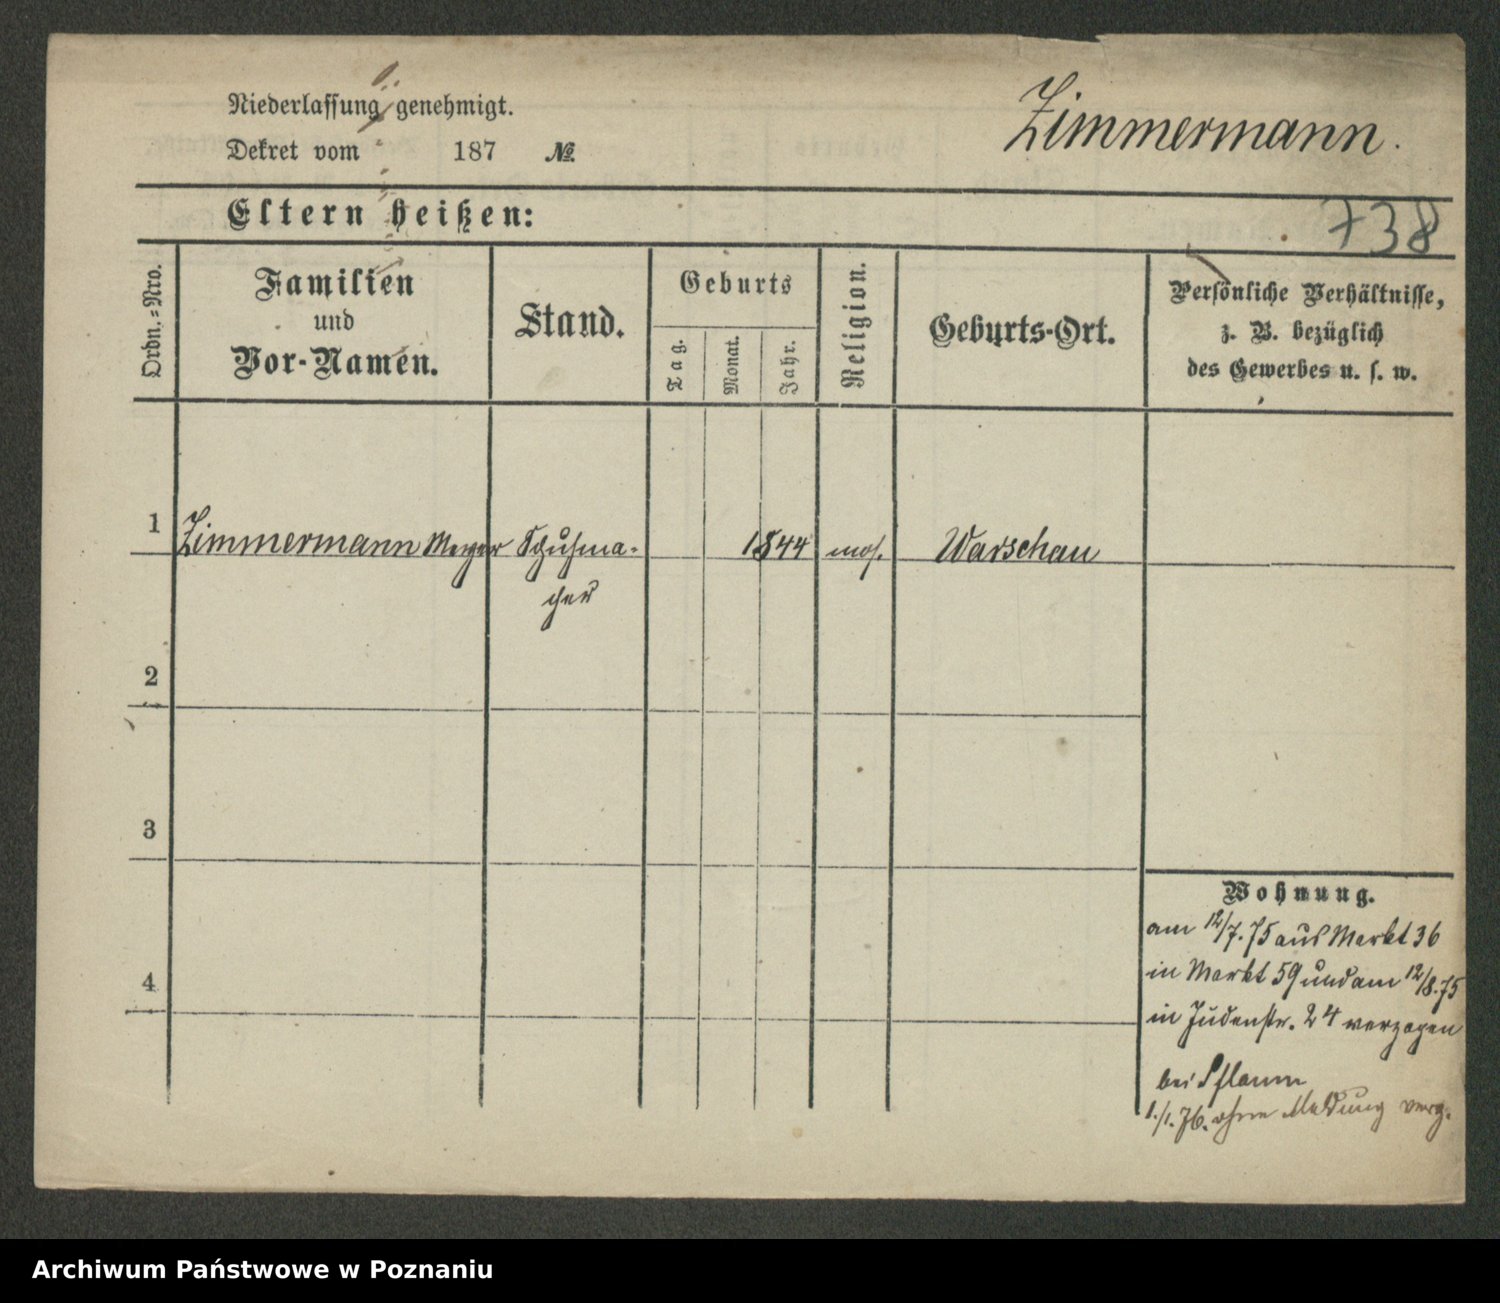 Niederlassung genehmigt.
Dekret vom 187 №
Zimmermann.
Eltern heißen:
738
Ordn.=Nro.
Familien
und
Vor-Namen.
Stand.
Geburts
Tag.
Monat.
Jahr.
Religion.
Geburts-Ort.
Persönliche Verhältnisse,
z. B. bezüglich
des Gewerbes u. s. w.
1 Zimmermann Meyer Schuhma- 1844 mos. Warschau
cher
2
3
4
Wohnung.
am 12/7. 75 aus Markt 36
in Markt 59 und am 12/8. 75
in Judenstr. 24 verzogen
bei Pflaum
1./1. 76. ohne Meldung verz.
Archiwum Państwowe w Poznaniu